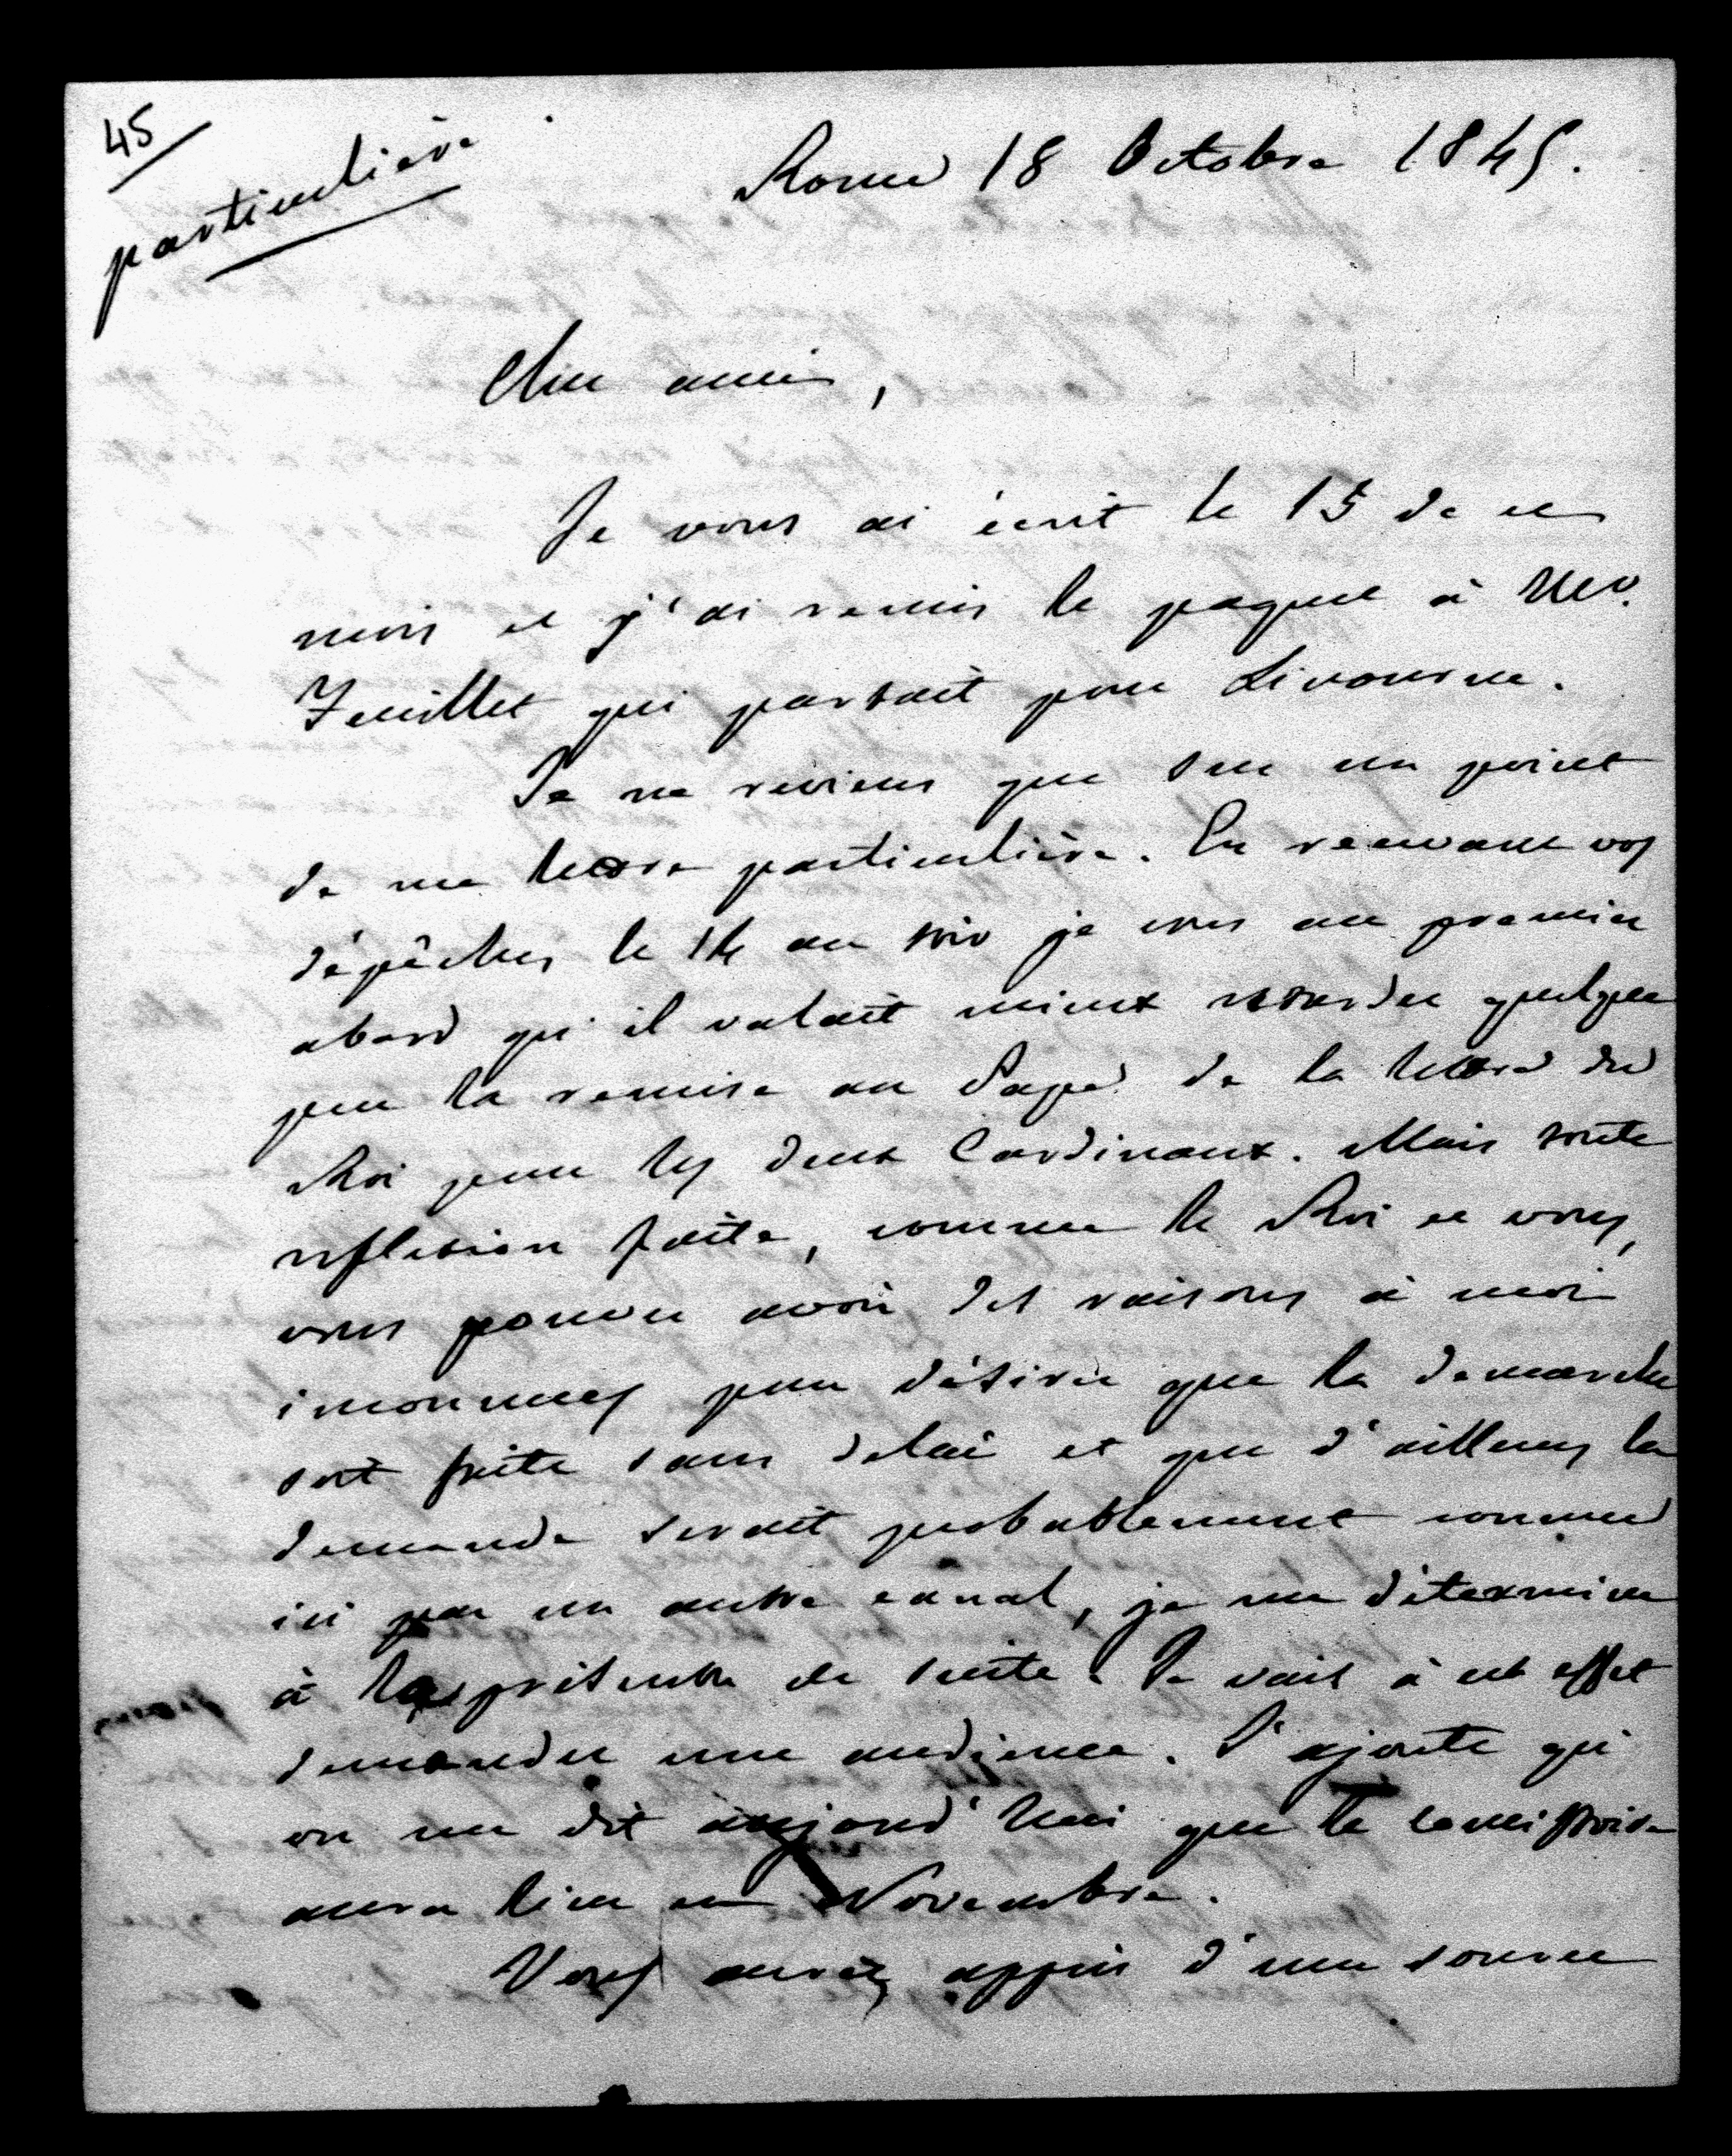 45
particulière
Rome 18 Octobre 1845.
Cher ami,
Je vous ai écrit le 15 de ce
mois et j'ai remis le paquet à Mr.
Feuillet qui partait pour Livourne.
Je ne reviens que sur un point
de ma lettre particulière. En recevant vos
dépêches le 14 au soir je crus au premier
abord qu'il valait mieux retarder quelque
peu la remise au Pape de la lettre du
Roi pour les deux Cardinaux. Mais toute
reflexion faite, comme le Roi et vous,
vous pouvez avoir des raisons à moi
inconnues pour désirer que la demarche
soit faite sans delai et que d'ailleurs la
demande serait probablement connue
ici par un autre canal, je me détermine
à la présenter de suite. Je vais à cet effet
demander une audience. J'ajoute qu'
on me dit aujourd'hui que le consistoire
aura lieu en Novembre.
Vous aurez appris d'une source